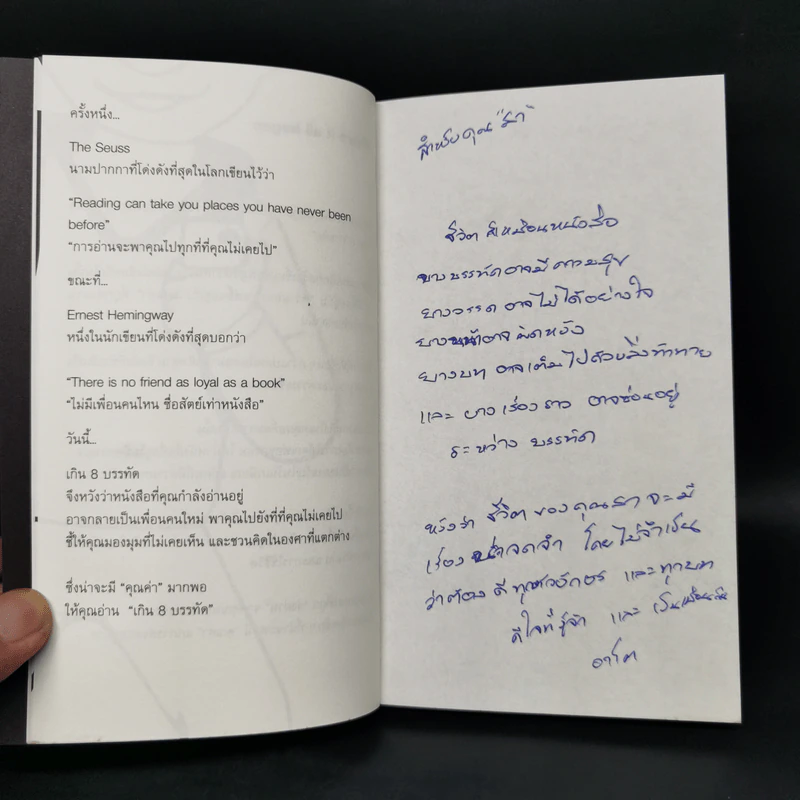 ครั้งหนึ่ง...
The Seuss
นามปากกาที่โด่งดังที่สุดในโลกเขียนไว้ว่า
“Reading can take you places you have never been
before”
“การอ่านจะพาคุณไปทุกที่ที่คุณไม่เคยไป”
ขณะที่...
Ernest Hemingway
หนึ่งในนักเขียนที่โด่งดังที่สุดบอกว่า
“There is no friend as loyal as a book”
“ไม่มีเพื่อนคนไหน ซื่อสัตย์เท่าหนังสือ”
วันนี้...
เกิน 8 บรรทัด
จึงหวังว่าหนังสือที่คุณกำลังอ่านอยู่
อาจกลายเป็นเพื่อนคนใหม่ พาคุณไปยังที่ที่คุณไม่เคยไป
ชี้ให้คุณมองมุมที่ไม่เคยเห็น และชวนคิดในองศาที่แตกต่าง
ซึ่งน่าจะมี “คุณค่า” มากพอ
ให้คุณอ่าน “เกิน 8 บรรทัด”
สำหรับคุณ
ชีวิตก็เหมือนหนังสือ
บางบรรทัดอาจมีความสุข
บางวรรค อาจไม่ได้อย่างใจ
บางหน้าอาจผิดหวัง
บางบท อาจเต็มไปด้วยสิ่งท้าทาย
และ บางเรื่องราว อาจซ่อนอยู่
ระหว่าง บรรทัด
หวังว่า ชีวิตของคุณ จะมี
เรื่อง น่าจดจำ โดยไม่จำเป็น
ว่าต้อง ดี ทุกตัวอักษร และทุกบท
ดีใจที่รู้จัก และ เป็นเพื่อนกัน